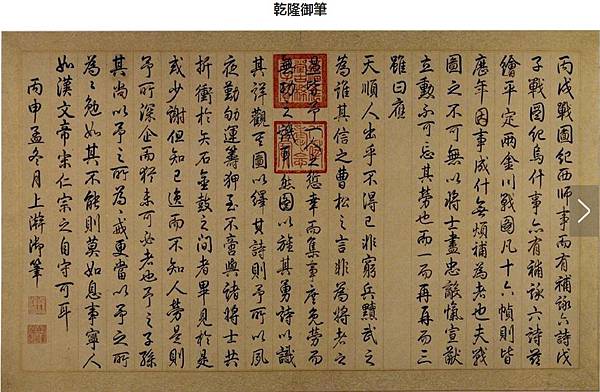 乾隆御筆
丙戌戰圖紀西師事而有補詠六詩戊
子戰圖紀烏什事亦有補詠六詩茲
繪平定兩金川戰圖凡十六幀則皆
歷年因事成什無煩補為者也夫戰
圖之不可無以將士盡忠敵愾宣猷
立勳不可忘其勞也而一而再再而三
雖曰應
天順人出乎不得已非窮兵黷武之
為誰其信之曹松之言非為將者之
予一人之愆幸而集事庶免勞而
無功之譏耳然圖以旌其勇詩以識
其詳觀是圖以繹其詩則予所以夙
夜勤劬運籌狎至不啻與諸將士共
折衝於矢石金鼓之間者畢見於是
或少謝但知己逸而不知人勞是則
予所深企而猶未可必者也予之子孫
其尚以予之所為戒更當以予之所
為〻勉如其不能則莫如息事寧人
如漢文帝宋仁宗之自守可耳
丙申孟冬月上澣御筆